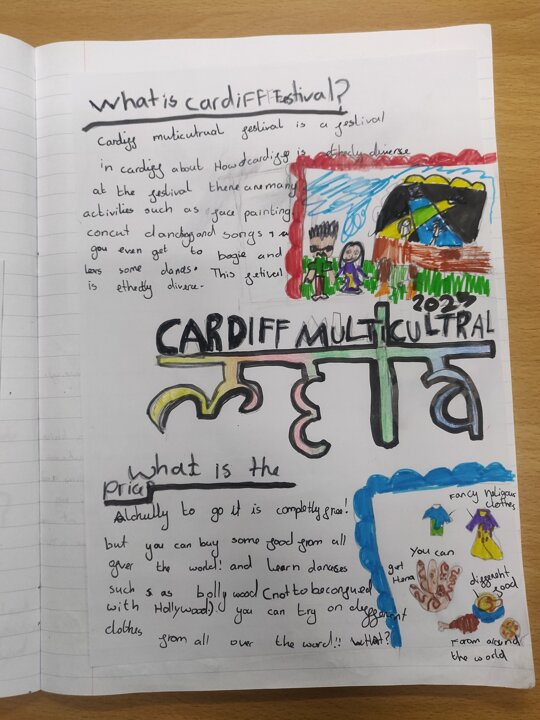 What is Cardiff Festival?
Cardiff muticultrual festival is a festival
in cardiff about How cardiff is ethecly diverse
at the festival there are many
activities such as face painting
concut dancing and songs
you even get to bogie and
lern some dances. This fetivel
is ethedly diverse.
2023
CARDIFF MULTICULTRAL
What is the
price?
Alchully to go it is completly free!
but you can buy some food from all
over the world! and learn dances
such as bolly wood (not to be confused
with Hollywood) you can try on different
clothes from all over the word!! WHAT?
Fancy religous
clothes
You can
get Hena
different
food
From around
the world